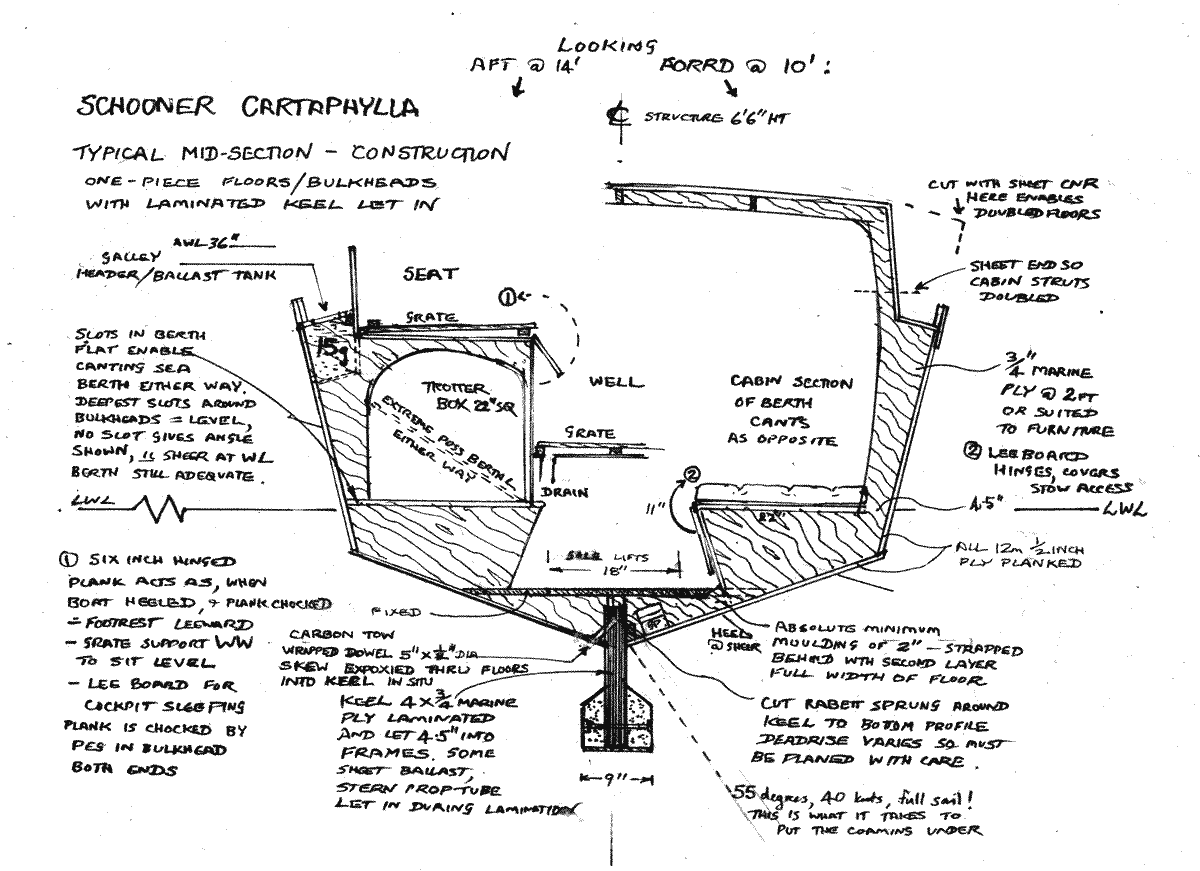 LOOKING
AFT @ 14' FORRD @ 10':
SCHOONER CARTAPHYLLA
℄ STRUCTURE 6'6" HT
TYPICAL MID-SECTION - CONSTRUCTION
ONE-PIECE FLOORS/BULKHEADS
WITH LAMINATED KEEL LET IN
CUT WITH SHEET CNR
HERE ENABLES
DOUBLED FLOORS
AWL 36"
GALLEY
HEADER/BALLAST TANK
SEAT
SHEET END SO
CABIN STRUTS
DOUBLED
①
GRATE
15g
SLOTS IN BERTH
FLAT ENABLE
CANTING SEA
BERTH EITHER WAY.
DEEPEST SLOTS AROUND
BULKHEADS = LEVEL,
NO SLOT GIVES ANGLE
SHOWN, 11 SHEER AT WL
BERTH STILL ADEQUATE.
TROTTER
BOX 22" SQ
EXTREME POSS BERTH L
EITHER WAY
WELL
CABIN SECTION
OF BERTH
CANTS
AS OPPOSITE
3/4" MARINE
PLY @ 2FT
OR SUITED
TO FURNITURE
GRATE
DRAIN
② LEEBOARD
HINGES, COVERS
STOW ACCESS
②
11"
22"
4.5"
LWL
LWL
SOLE LIFTS
18"
ALL 12m 1/2 INCH
PLY PLANKED
① SIX INCH HINGED
PLANK ACTS AS, WHEN
BOAT HEELED, & PLANK CHOCKED
- FOOTREST LEEWARD
- GRATE SUPPORT WW
TO SIT LEVEL
- LEE BOARD FOR
COCKPIT SLEEPING
PLANK IS CHOCKED BY
PEG IN BULKHEAD
BOTH ENDS
FIXED
CARBON TOW
WRAPPED DOWEL 5" X 1/2" DIA
SKEW EXPOXIED THRU FLOORS
INTO KEEL IN SITU
KEEL 4 X 3/4 MARINE
PLY LAMINATED
AND LET 4.5" INTO
FRAMES. SOME
SHEET BALLAST,
STERN PROP-TUBE
LET IN DURING LAMINATION
9"
HEEL
@ SHEER
ABSOLUTE MINIMUM
MOULDING OF 2" - STRAPPED
BEHIND WTH SECOND LAYER
FULL WIDTH OF FLOOR
CUT RABETT SPRUNG AROUND
KEEL TO BOTTOM PROFILE
DEADRISE VARIES SO MUST
BE PLANED WITH CARE.
55 degrees, 40 knts, full sail!
THIS IS WHAT IT TAKES TO
PUT THE COAMING UNDER